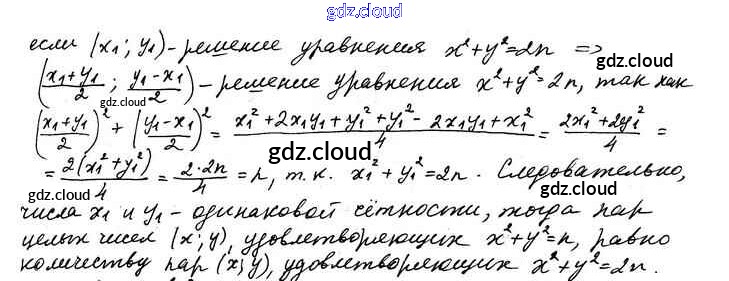 gdz.cloud
если (x₁; y₁) - решение уравнения x²+y²=2n =>
gdz.cloud
((x₁+y₁)/2 ; (y₁-x₁)/2) - решение уравнения x²+y²=2n, так как
gdz.cloud
((x₁+y₁)/2)² + ((y₁-x₁)/2)² = (x₁²+2x₁y₁+y₁²+y₁²-2x₁y₁+x₁²)/4 = (2x₁²+2y₁²)/4 =
gdz.cloud
= 2(x₁²+y₁²)/4 = 2·2n/4 = n, т.к. x₁²+y₁²=2n. Следовательно,
gdz.cloud gdz.cloud
числа x₁ и y₁ - одинаковой чётности, тогда пар
целых чисел (x; y), удовлетворяющих x²+y²=n, равно
количеству пар (x; y), удовлетворяющих x²+y²=2n.